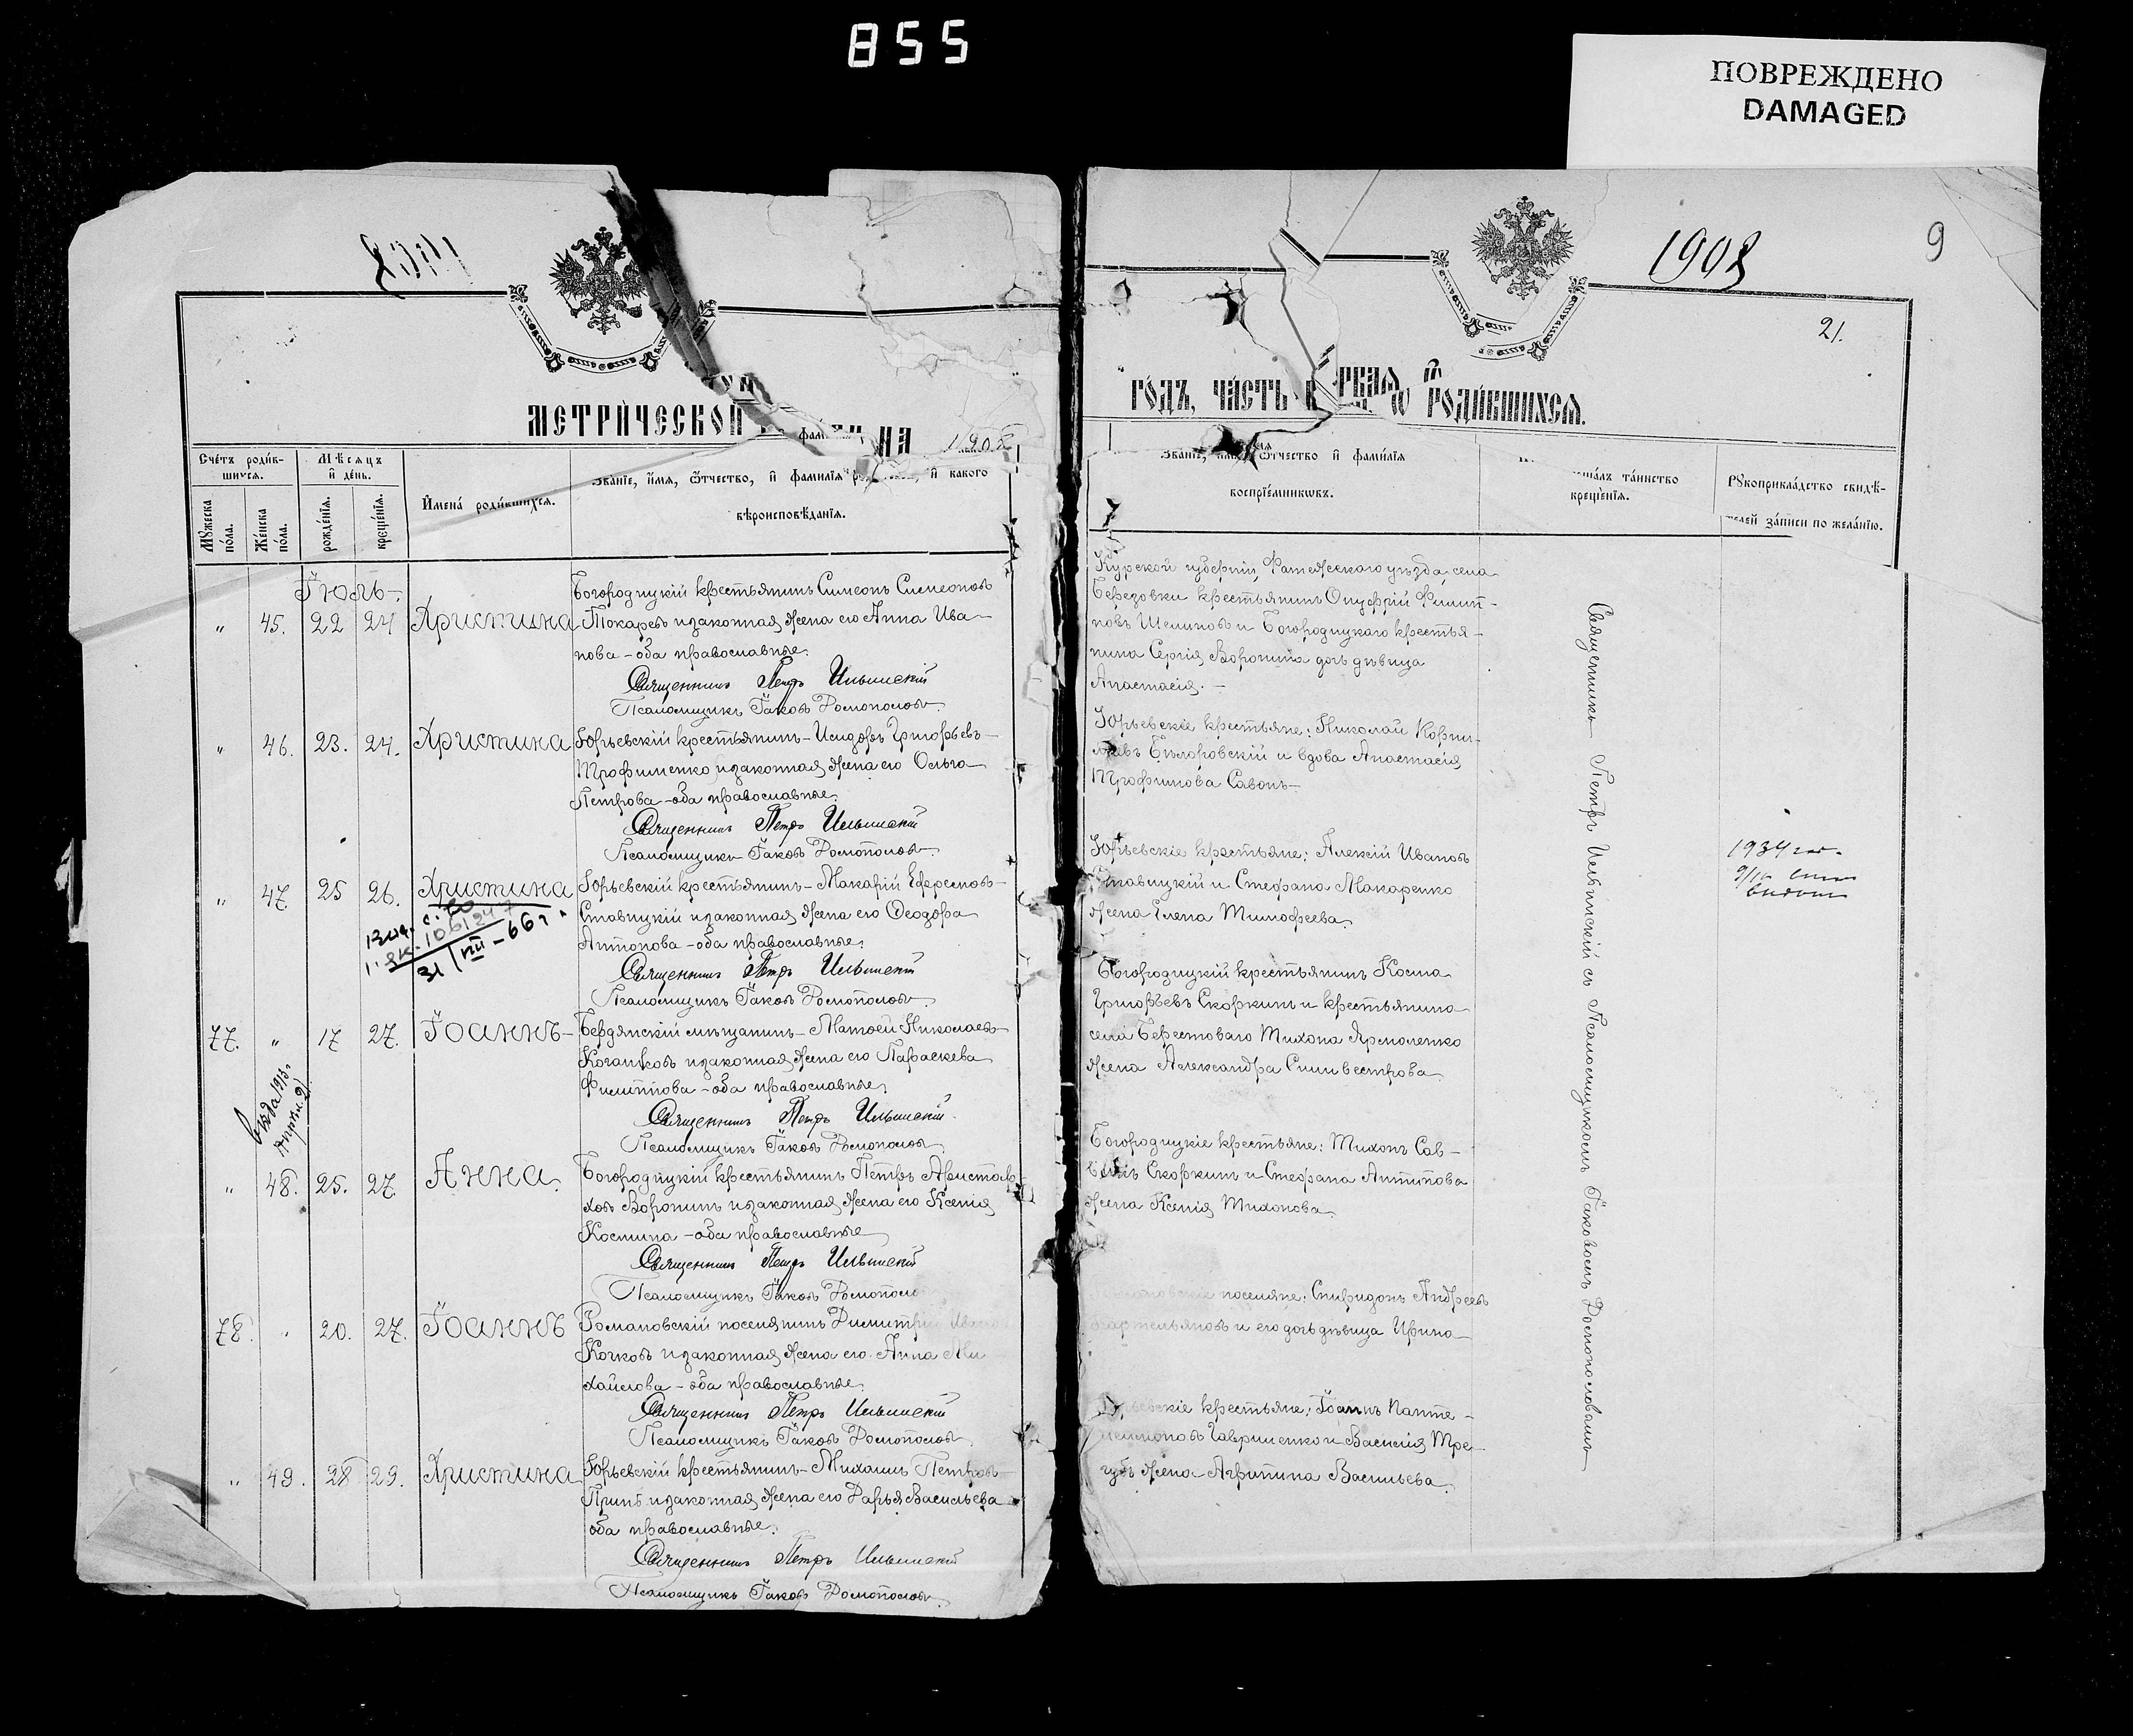 855
ПОВРЕЖДЕНО
DAMAGED
1908
9
21.
МЕТРИ́ЧЕСКОЙ
НА 190
ГО́ДЪ, ЧА́СТЬ РОДИ́ВШИХСѦ.
Сче́тъ роди́в-
шихсѧ.
Мꙋ́жеска по́ла.
Же́нска по́ла.
Мѣ́сѧцъ
и҆ де́нь.
рожде́нїѧ.
креще́нїѧ.
И҆мена̀ роди́вшихсѧ.
Зва́нїе, и҆́мѧ, ѻ҆́тчество, и҆ фамилїѧ и҆ какого
вѣроисповѣ́данїѧ.
Зва́нїе, и҆́мѧ, ѻ҆́тчество и҆ фами́лїѧ
воспрїе́мникѡвъ.
та́инство
креще́нїѧ.
Рꙋкоприкла́дство свидѣ́-
телей за́писи по жела́нїю.
Іюль
" 45. 22 24 Христина
Богородицкій крестьянинъ Симеонъ Симеоновъ
Токаревъ и законная жена его Анна Ива-
нова - оба православные.
Священникъ Петръ Ильинскій
Псаломщикъ Іаковъ Домополовъ
Курской губерніи, Фатежскаго уѣзда, села
Березовки крестьянинъ Онуфрій Филип-
повъ Шелиповъ и Богородицкаго крестья-
нина Сергія Воронина дочь дѣвица
Анастасія. -
" 46. 23. 24. Христина
Юрьевскій крестьянинъ - Исидоръ Григорьевъ
Трофименко и законная жена его Ольга
Петрова - оба православные.
Священникъ Петръ Ильинскій
Псаломщикъ Іаковъ Домополовъ
Юрьевскіе крестьяне: Николай Корни-
ліевъ Бѣлоровскій и вдова Анастасія
Трофимова Савонъ
" 47. 25 26. Христина
31/VIII - 66 г.
Юрьевскій крестьянинъ - Макарій Ефремовъ
Ставицкій и законная жена его Ѳеодора
Антонова - оба православные.
Священникъ Петръ Ильинскій
Псаломщикъ Іаковъ Домополовъ
Юрьевскіе крестьяне: Алексій Ивановъ
Ставицкій и Стефана Макаренко
жена Елена Тимофеева.
1934
77. " 17 27. Іоаннъ
Бердянскій мѣщанинъ - Матѳей Николаевъ
Коганковъ и законная жена его Параскева
Филиппова - оба православные.
Священникъ Петръ Ильинскій
Псаломщикъ Іаковъ Домополовъ
Богородицкій крестьянинъ Косма
Григорьевъ Скоркинъ и крестьянина
села Берестоваго Тихона Ярмоленко
жена Александра Силивестрова.
" 48. 25. 27. Анна.
Богородицкій крестьянинъ Петръ Аристар-
ховъ Воронинъ и законная жена его Ксенія
Космина - оба православные
Священникъ Петръ Ильинскій
Псаломщикъ Іаковъ Домополовъ
Богородицкіе крестьяне: Тихонъ Сав-
Скоркинъ и Стефана Антипова
жена Ксенія Тихонова.
78. " 20. 27. Іоаннъ
Романовскій поселянинъ Димитрій
Кочковъ и законная жена его Анна Ми-
хайлова - оба православные.
Священникъ Петръ Ильинскій
Псаломщикъ Іаковъ Домополовъ
поселяне: Спиридонъ Андреевъ
и его дочь дѣвица Ирина
" 49. 28 29. Христина
Юрьевскій крестьянинъ - Михаилъ Петровъ
и законная жена его Дарья Васильева
оба православные.
Священникъ Петръ Ильинскій
Псаломщикъ Іаковъ Домополовъ
Юрьевскіе крестьяне: Іоаннъ Панте-
леимоновъ Гавриленко и Василія Тре-
губъ жена Агрипина Васильева.
Священникъ Петръ Ильинскій съ Псаломщикомъ Іаковомъ Домополовымъ